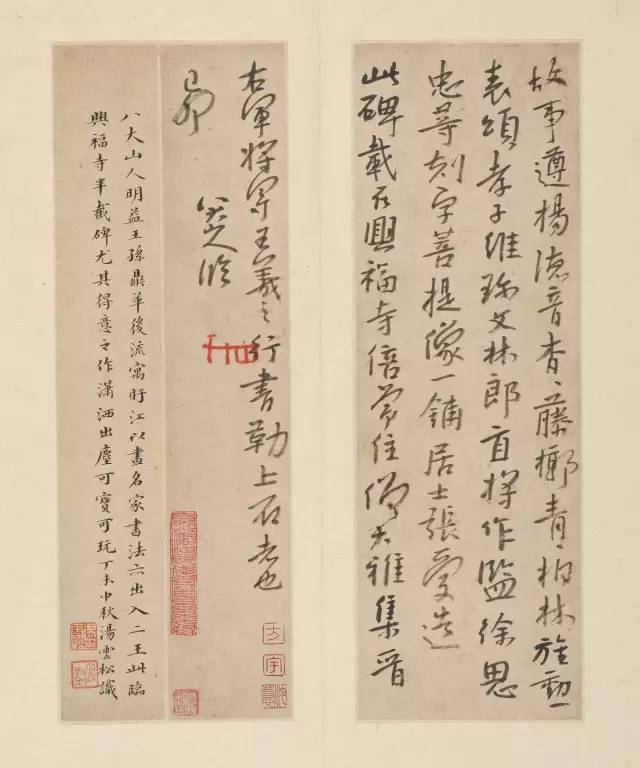 故事遵揚德音杳〻藤鄉青〻栢林旌勳
表頌孝子維孫文林郎直將作監徐思
忠等刻字菩提像一鋪居士張愛造
此碑載在興福寺陪常住僧大雅集晉
右軍將軍王羲之行書勒上石者也
己卯
八大山人臨
方宇
八大山人明益王孫鼎革後流寓盱江以畫名家書法亦出入二王此臨
興福寺半截碑尤其得意之作瀟洒出塵可寶可玩丁未中秋湯雲松識